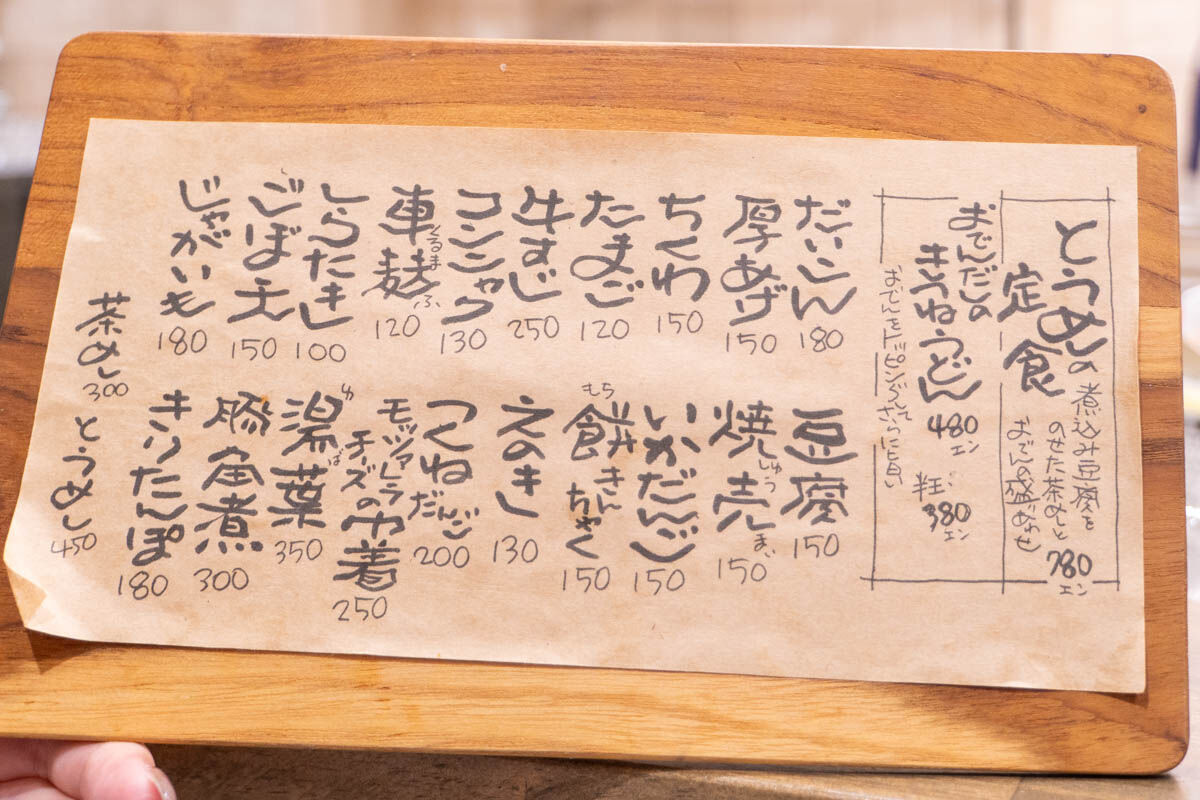 とうめしの
定食
煮込み豆腐を
のせた茶めしと
おでんの盛りあわせ
780エン
おでんだしの
きつねうどん
480エン
半玉
380エン
おでんをトッピングしてさらに旨い
だいこん 180
厚あげ 150
ちくわ 150
たまご 120
牛すじ 250
コンニャク 130
車麸 くるまふ 120
しらたき 100
ごぼ天 150
じゃがいも 180
豆腐 150
焼売 しゅうまい 150
いかだんご 150
餅きんちゃく もち 150
えのき 130
つくねだんご 200
モッツァレラ
チーズの巾着 250
湯葉 ゆば 350
豚角煮 300
きりたんぽ 180
茶めし 300
とうめし 450